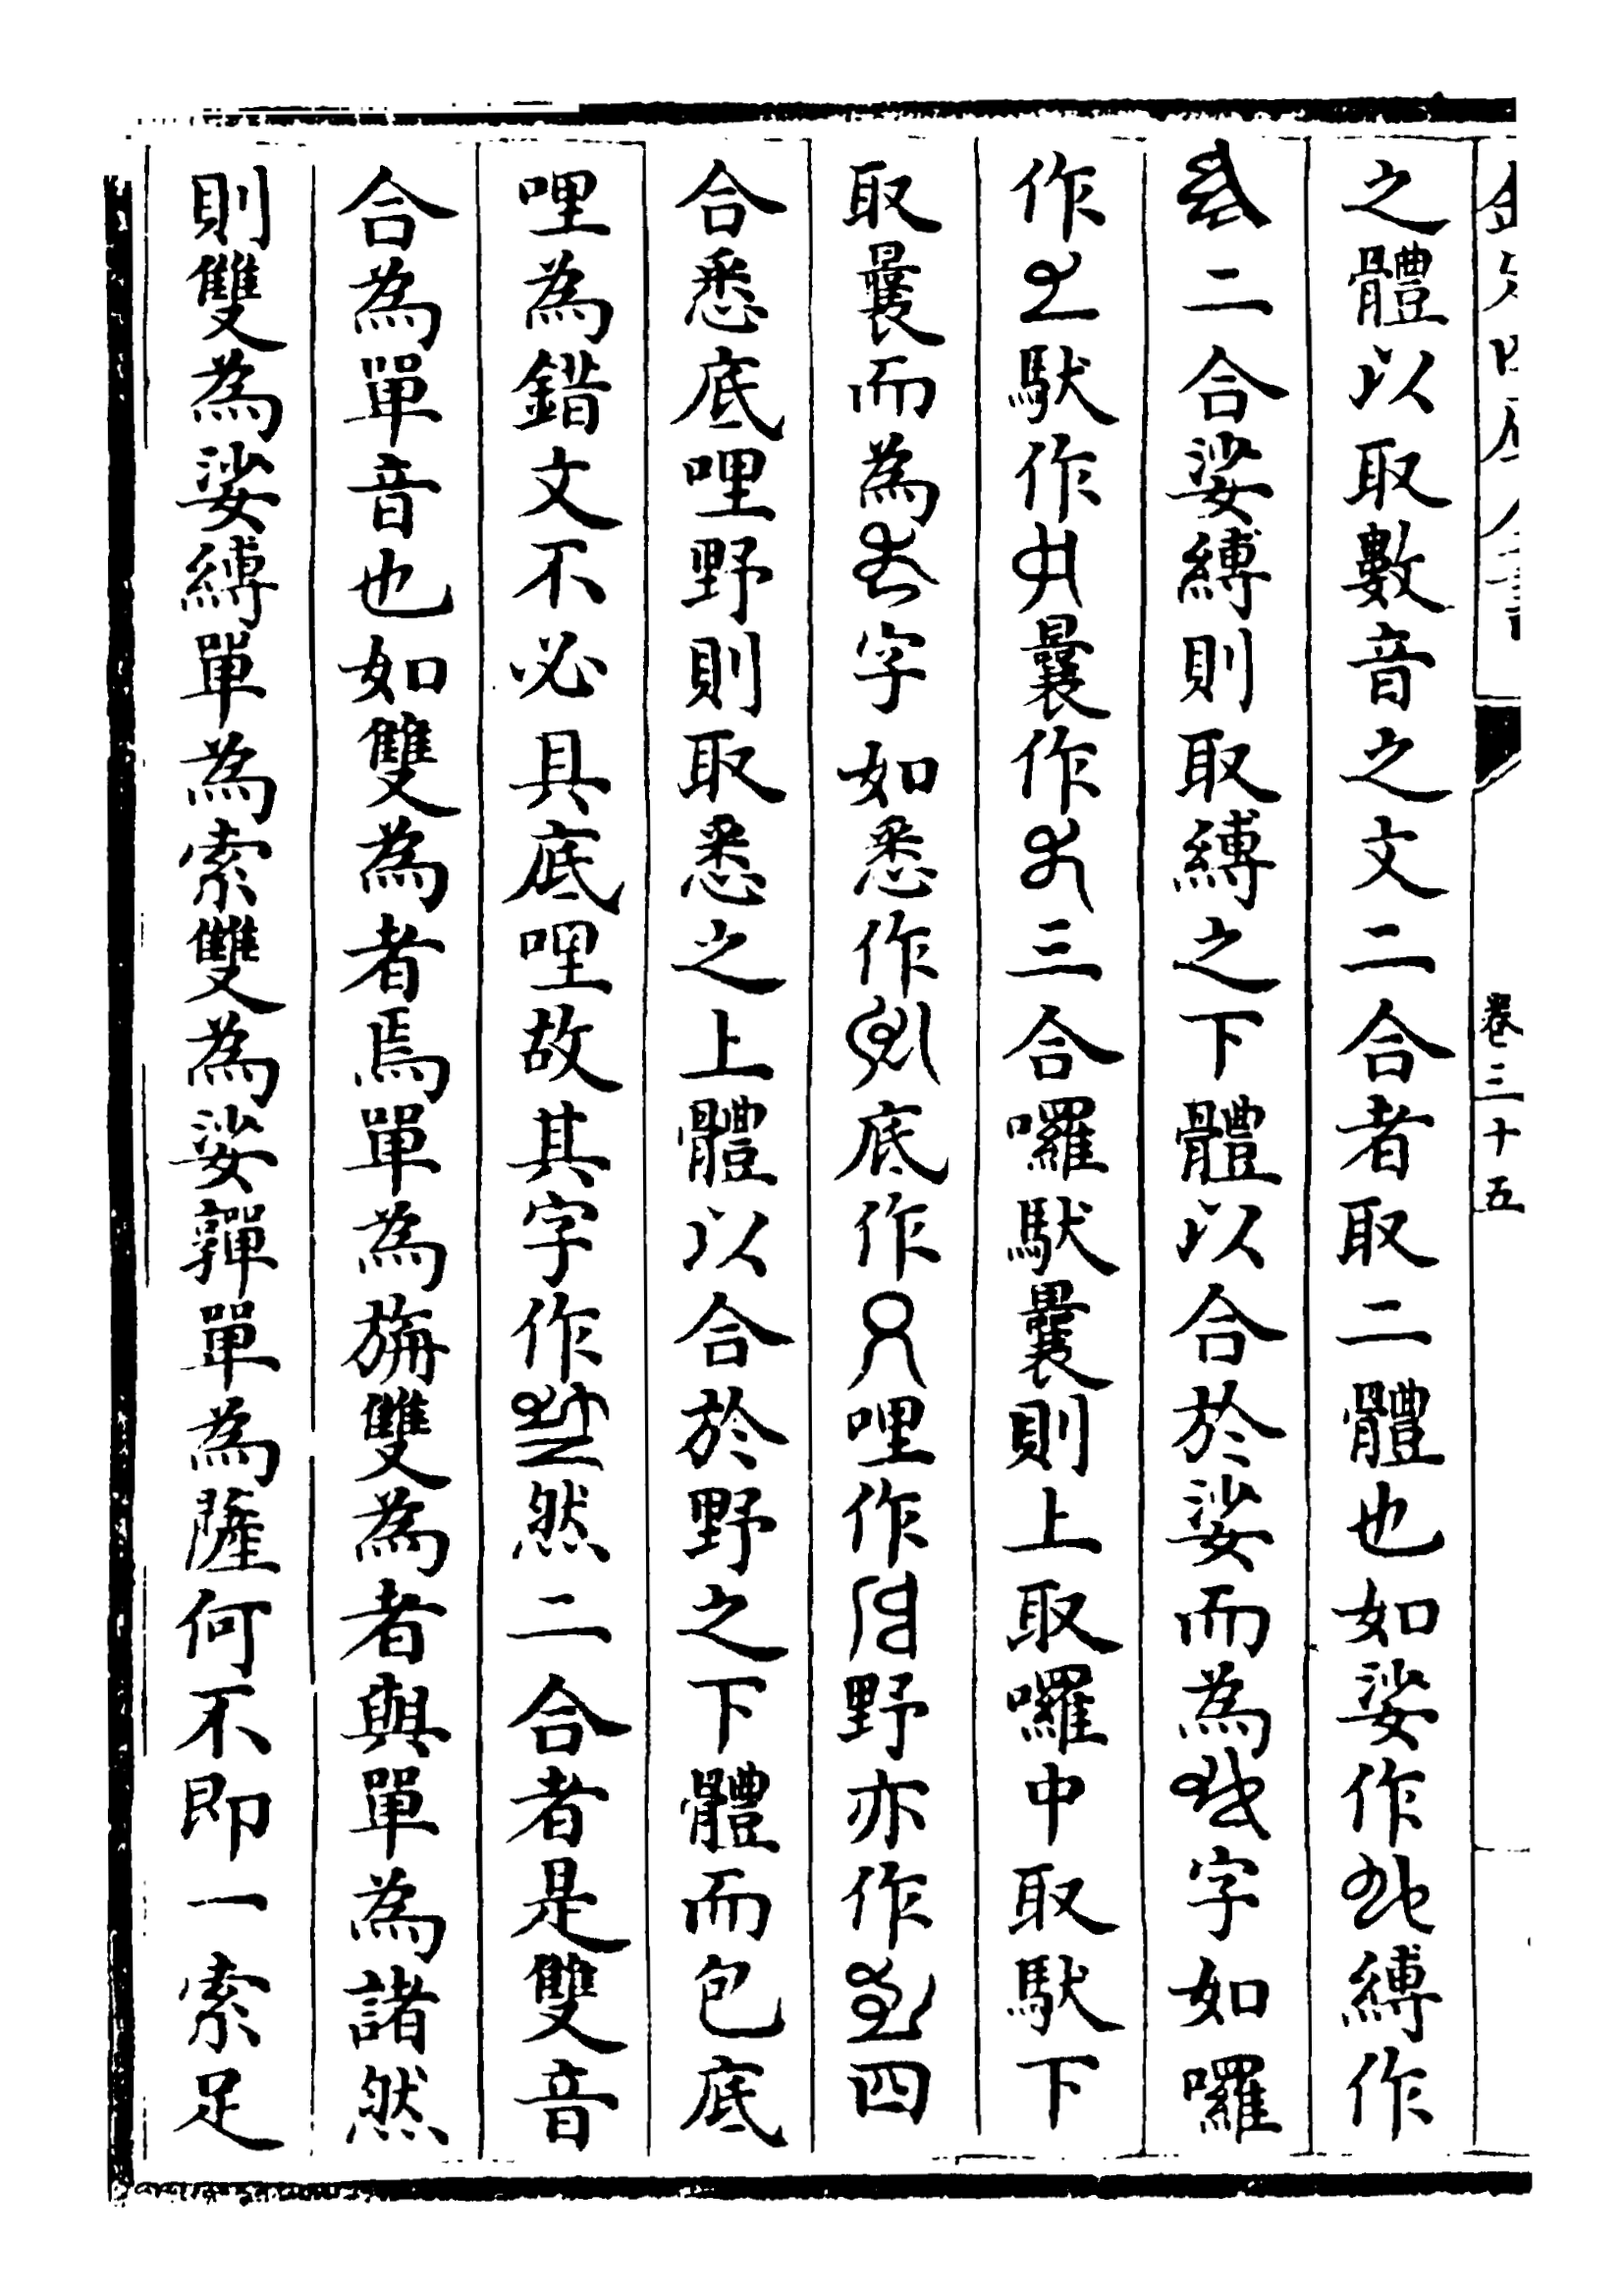 之體以取數音之文二合者取二體也如娑作縛作
二合娑縛則取縛之下體以合於娑而為字如囉
作馱作曩作三合囉馱曩則上取囉中取馱下
取曩而為字如悉作底作哩作野亦作四
合悉底哩野則取悉之上體以合於野之下體而包底
哩為錯文不必具底哩故其字作然二合者是雙音
合為單音也如雙為者焉單為旃雙為者與單為諸然
則雙為娑縛單為索雙為娑單為薩何不即一索足
卷三十五